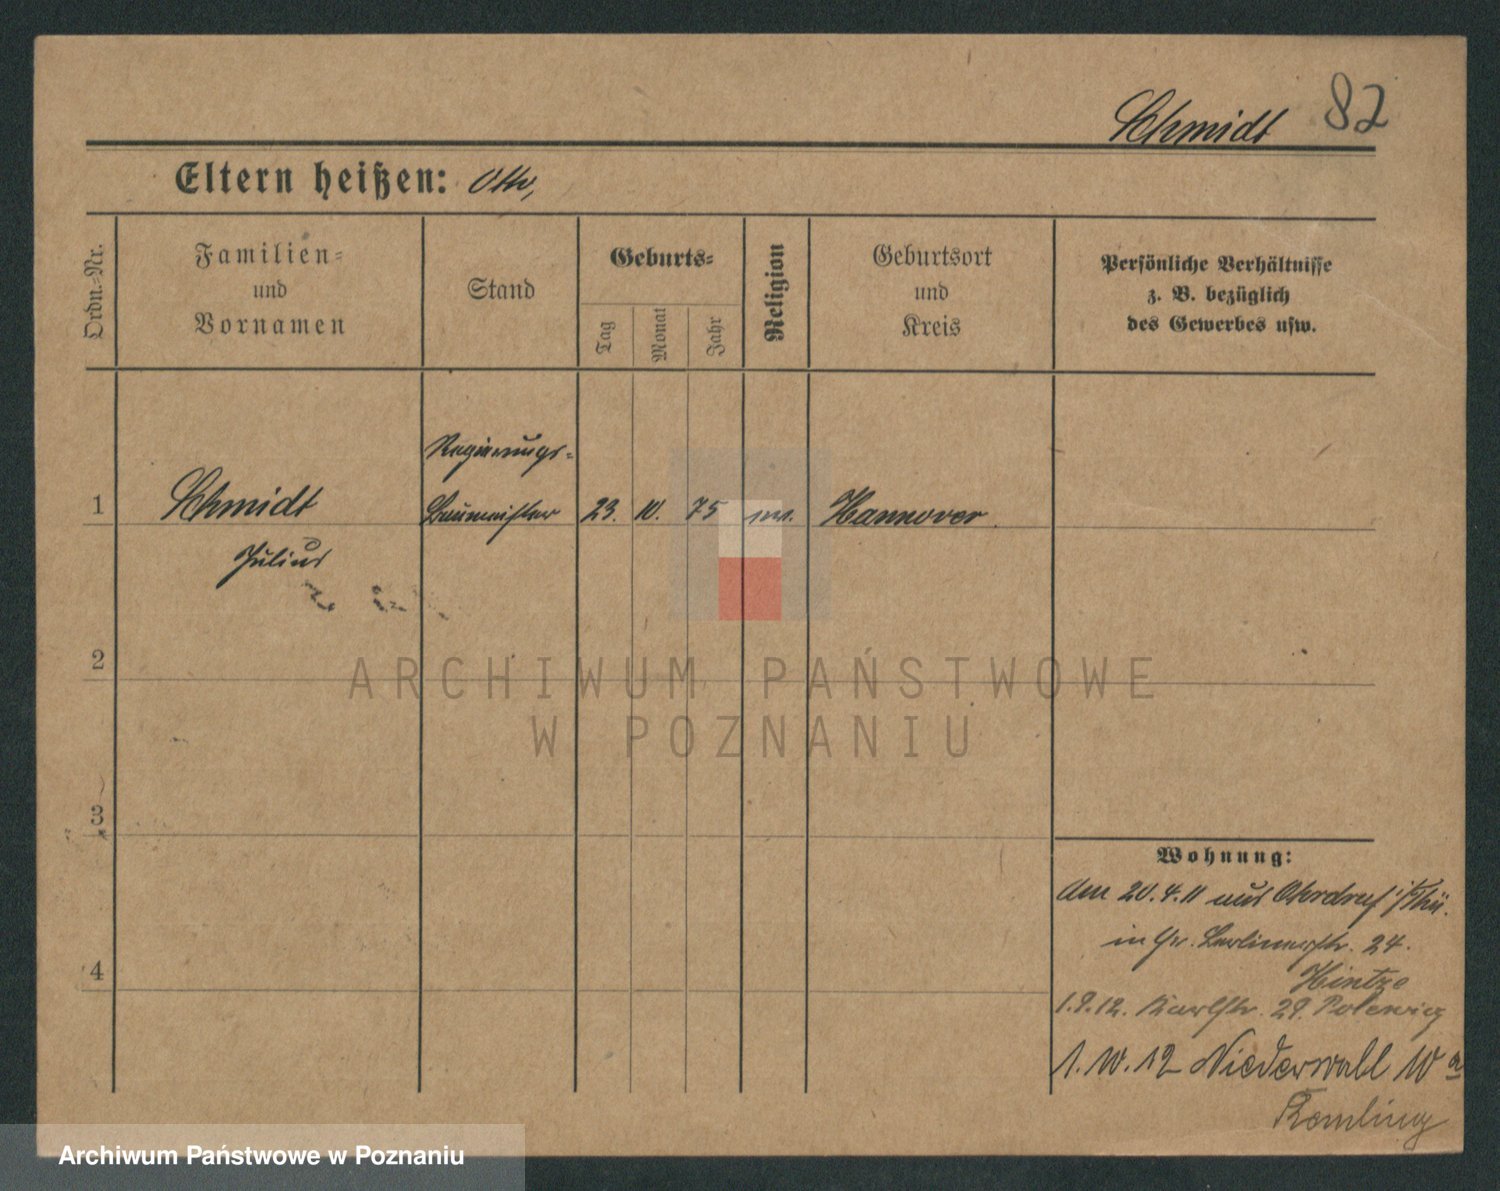 Schmidt 82
Eltern heißen: Otto,
Ordn.-Nr.
Familien-
und
Vornamen
Stand
Geburts-
Tag
Monat
Jahr
Religion
Geburtsort
und
Kreis
Persönliche Verhältnisse
z. B. bezüglich
des Gewerbes usw.
Regierungs-
1 Schmidt Baumeister 23. 10. 75 Hannover
Julius
2
ARCHIWUM PAŃSTWOWE
W POZNANIU
3
Wohnung:
am 20.4.11 aus Ohrdruf i/Thü.
in Gr. Berlinerstr. 24.
4
Hintze
1.9.12. Karlstr. 29.
1. 10. 12 Niederwall 10 a
Remling
Archiwum Państwowe w Poznaniu